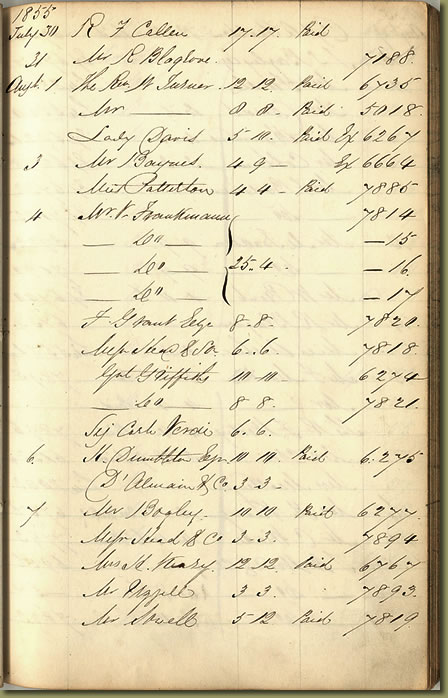 1855
July 30 R F Callen 17.17. Paid
31 Mr R Blagrove. 7188.
Augt. 1 The Rev W Turner. 12 12. Paid 6735
Mr —— 8 8 - Paid 5018.
Lady Davis 5 10. Paid Ex 6267
3 Mr Baynes. 4 9 — Ex 6664
Miss Patterson 4 4 - Paid 7885
4 Mr. V. Frankmann 7814
— Do — — 15
— Do — 25.4. — 16.
— Do — — 17
F Grant Esqe 8.8. 7820.
Messr Head & Co. 6.6. 7818.
Griffiths 10 10 - 6274
— Do — 8 8. 7821.
Sig Carlo Verdi 6.6.
6. Dumbleton Esqr. 10 10. Paid 6.275
D'Almain & Co 3 3 -
7 Mr Bagley. 10 10 Paid 6277.
Messr Head & Co 3 - 3. 7894
Mrs H. 12.12. Paid 6767
Mr 3 3. 7893.
Mr Sewell 5 12 Paid 7819